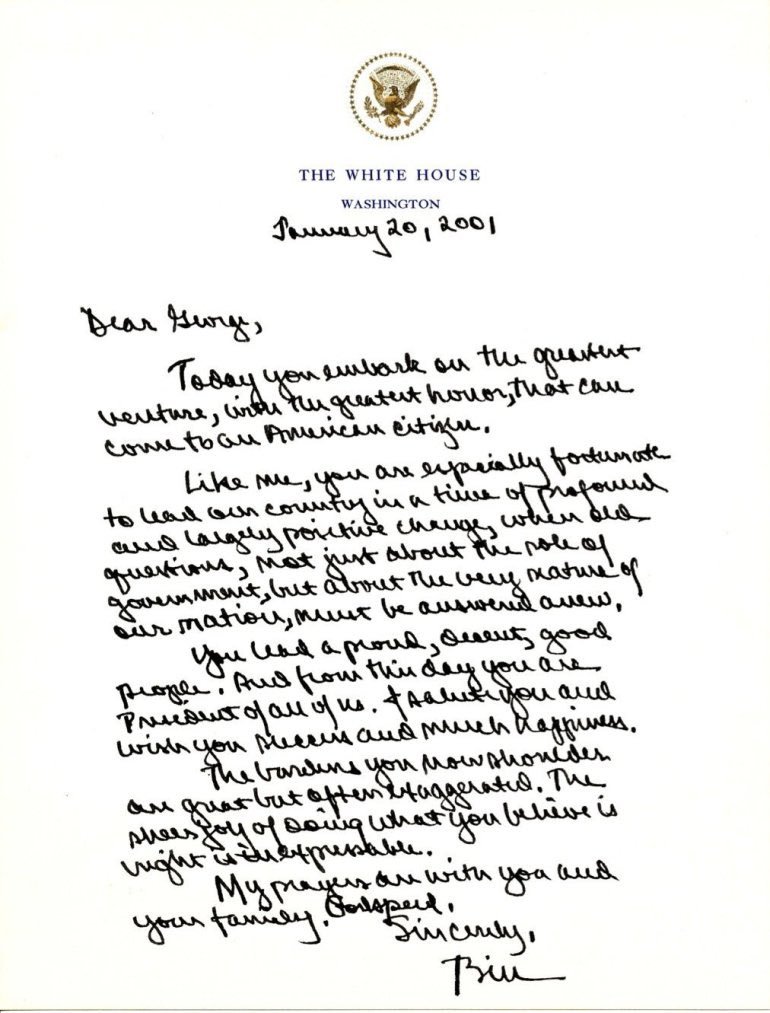 THE WHITE HOUSE
WASHINGTON
January 20, 2001
Dear George,
Today you embark on the greatest
venture, with the greatest honor, that can
come to an American citizen.
Like me, you are especially fortunate
to lead our country in a time of profound
and largely positive change, when old
questions, not just about the role of
government, but about the very nature of
our nation, must be answered anew.
You lead a proud, decent, good
people. And from this day you are
President of all of us. I salute you and
wish you success and much happiness.
The burdens you now shoulder
are great but often exaggerated. The
sheer joy of doing what you believe is
right is inexpressible.
My prayers are with you and
your family. Godspeed.
Sincerely,
Bill